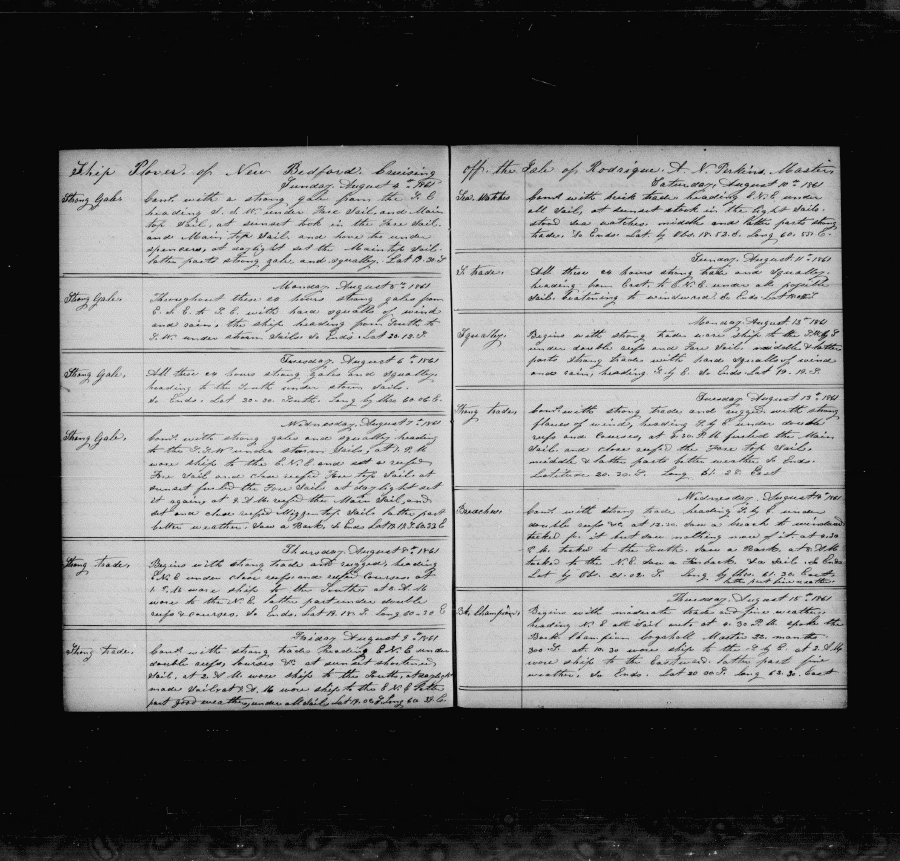 Ship Plover of New Bedford. Cruising
Sunday August 4th 1861
Strong Gale.
Comd. with a strong gale from the S. E.
heading S. S. W. under Fore Sail and Main
top Sail. at sunset took in the Fore Sail
and Main top Sail and hove to under
spencers, at daylight set the Main top Sail.
latter parts strong gale and squally. Lat
Monday August 5th 1861
Strong Gale.
Throughout these 24 hours strong gales from
E. S. E. to S. E. with hard squalls of wind
and rain, the ship heading from South to
S. W. under storm Sails. So Ends. Lat 20.13 S.
Tuesday August 6th 1861
Strong Gale.
All these 24 hours strong gales and squally.
heading to the South under storm Sails.
So Ends. Lat 20.30 South. Long by Chro 60.06 E.
Wednesday August 7th 1861
Strong Gale.
Comd. with strong gales and squally heading
to the S. S. W. under storm Sails, at 1. P. M
wore ship to the E. N. E and set a reefed
Fore Sail and close reefed Fore top Sail. at
sunset furled the Fore Sail. at daylight set
it again, at 9. A. M. reefed the Main Sail, and
set and close reefed Mizzen top Sail. latter part
better weather. Saw a Bark. So Ends Lat
Thursday August 8th 1861
Strong trade.
Begins with strong trade and rugged, heading
E. N. E under close reefs and reefed Courses at
1. P. M wore ship to the South, at 6. A. M
wore to the N. E. latter part under double
reefs & Courses. So Ends. Lat 19.18 S Long 60-30 E
Friday August 9th 1861
Strong trade.
Comd. with strong trade heading E. N. E under
double reefs, Courses &c at sunset shortened
Sail. at 2. A. M. wore ship to the South, at daylight
made Sail. at 8. A. M wore ship to the E. N. E latter
part good weather, under all Sail. Lat Long 60.
off the Isle of Rodrigue. A. N. Perkins, Master
Saturday August 10th 1861
Sea Watches
Comd. with brisk trade, heading E. N. E under
all Sail, at sunset took in the light Sails.
stood sea watches. middle and latter parts strong
trade. So Ends. Lat. by Obs. 18.52. S. Long 60.55 E.
Sunday August 11th 1861
S trade.
All these 24 hours strong trade and squally.
heading from East. to E. N. E. under all possible
Sail. beating to windward. So Ends. Lat
Monday August 12th 1861
Squally.
Begins with strong trade wore ship to the
under double reefs and Fore Sail. middle & latter
parts strong trade with hard squalls of wind
and rain, heading S. by E. So Ends Lat 19. 19. S.
Tuesday August 13th 1861
Strong trade.
Comd. with strong trade and rugged with strong
flaws of wind, heading S. by E under double
reefs and Courses, at 5.30. P. M furled the Main
Sail and close reefed the Fore top Sail.
middle & latter parts better weather. So Ends.
Latitude 20. 30. S. Long 61. 28 East
Wednesday August 14th 1861
Breaches.
Comd. with strong trade heading S. by E under
double reefs &c. at 12.30 saw a breach to windward
tacked for it but saw nothing more of it at
P. M. tacked to the South. Saw a Bark. at 8. A. M
tacked to the N. E. saw a So Ends
Lat by Obs. 21.02. S. Long by Chro. 61.30. East
latter part fine weather
Thursday August 15th 1861
Bk. Champion.
Begins with moderate trade and fine weather
heading N. E. all Sail out. at 5.30 P. M. spoke the
Bark Champion Coggshall Master 22. months
300 S. at 10.30 wore ship to the S. by E. at 2. A. M
wore ship to the Eastward. latter part fine
weather. So Ends. Lat 20 20 S. Long 62.30. East